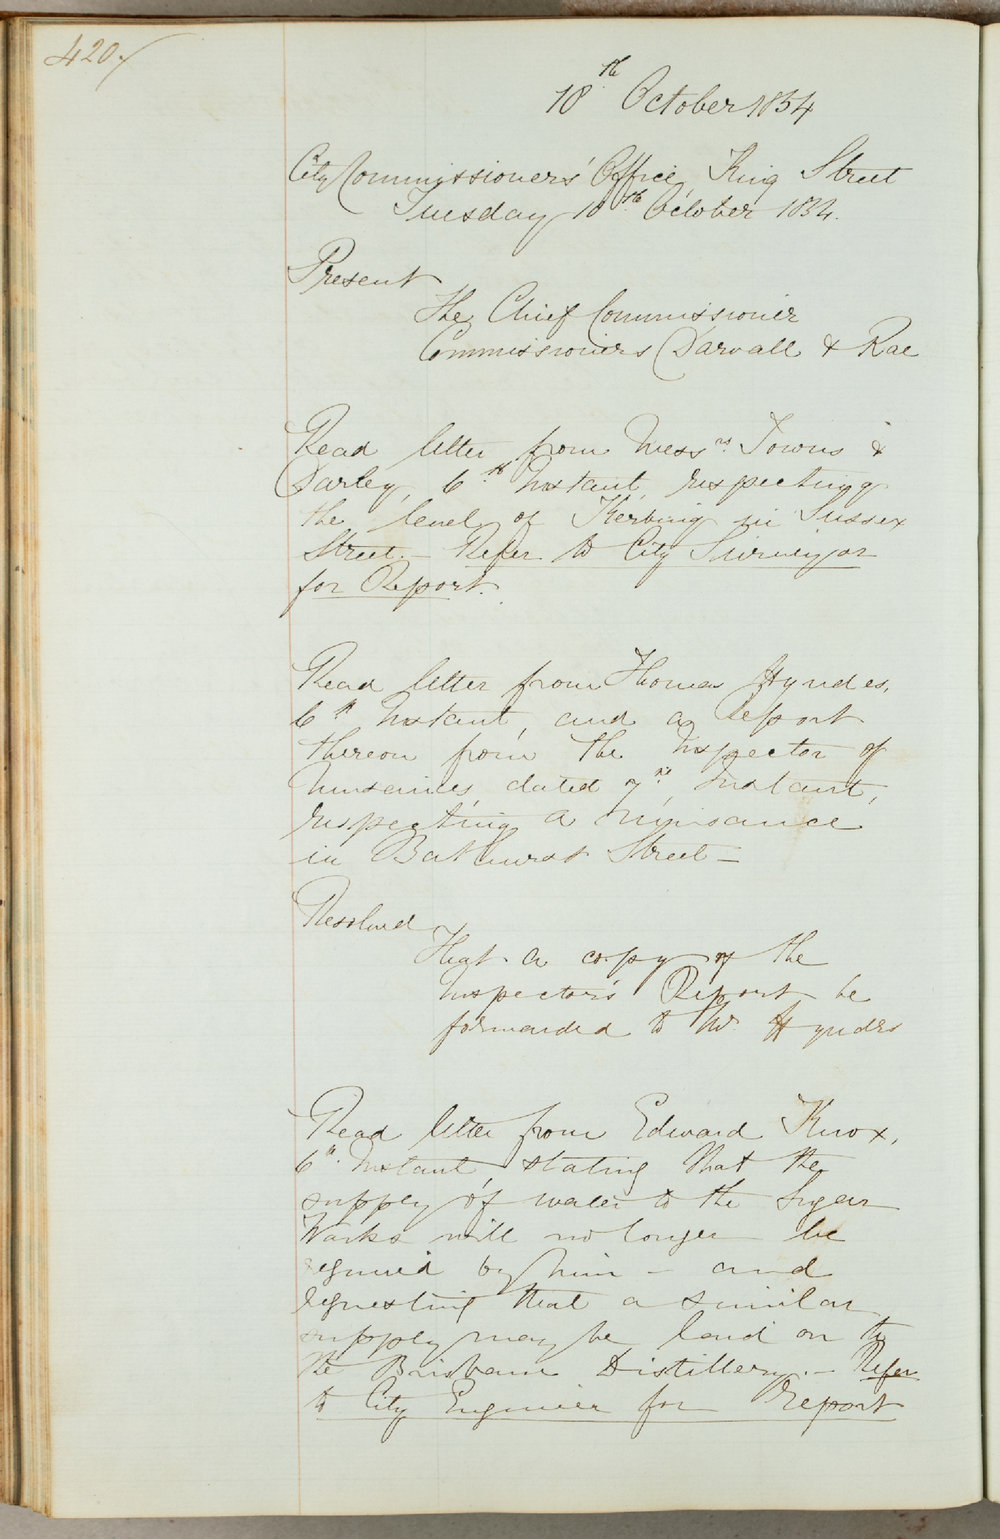 420.
10th October 1854
City Commissioners' Office, King Street
Tuesday 10th October 1854.
Present
The Chief Commissioner
Commissioners Darvall & Rae
Read letter from Messrs. Towns &
Darley, 6th Instant, respecting
the level of Kerbing in Sussex
Street. - Refer to City Surveyor
for Report.
Read letter from Thomas Hyndes,
6th Instant, and a Report
thereon from the Inspector of
Nuisances, dated 7th Instant,
respecting a Nuisance
in Bathurst Street -
Resolved
That a copy of the
Inspector's Report be
forwarded to Mr. Hyndes
Read letter from Edward Knox,
6th Instant, stating that the
supply of water to the Sugar
Works will no longer be
required by him - and
requesting that a similar
supply may be laid on to
the Brisbane Distillery. - Refer
to City Engineer for Report